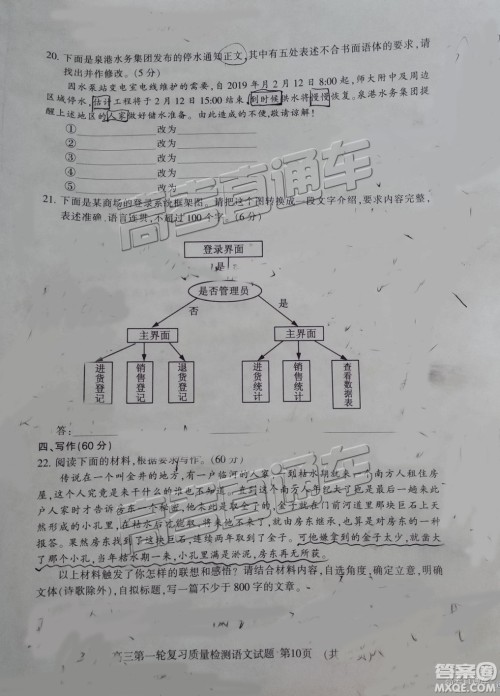 20. 下面是泉港水务集团发布的停水通知正文,其中有五处表述不合书面语体的要求,请
找出并作修改。(5 分)
因水泵站变电室电线维护的需要,自 2019 年 2 月 12 日 8:00起,师大附中及周边
区域停水,估计工程将于 2 月 12 日 15:00结束,到时候供水将慢慢恢复。泉港水务集团提
醒上述地区的人家做好储水准备。由此带来不便,敬请谅解!
① 改为
② 改为
③ 改为
④ 改为
⑤ 改为
21. 下面是某商场的登录系统框架图。请把这个图转换成一段文字介绍,要求内容完整,
表述准确,语言连贯,不超过 100 个字。(6 分)
登录界面
是
是否管理员
否 是
主界面 主界面
进货登记 销售登记 退货登记 进货统计 销售统计 查看数据表
答:
四、写作(60 分)
22. 阅读下面的材料,根据要求写作。(60 分)
传说在一个叫金井的地方,有一户临河的人家,一到枯水期来一个南方人租住房
屋,这个人究竟是来干什么的谁也不知道。直到
人家,一旦发了大财,就由房东继承,也算是对房东的一种
报答。果然房东找到了这块巨石上的小孔,找到了金子。可他嫌拿到的金子太少,就凿大
了那个小孔,当年枯水期一来,小孔里满是淤泥,房东再无所获。
以上材料触发了你怎样的联想和感悟?请结合材料内容,自选角度,确定立意,明确
文体(诗歌除外),自拟标题,写一篇不少于 800 字的文章。
高三第一轮复习质量检测语文试题 第10页 (共
高考直通车
高考直通车
答案圈
MXQE.COM